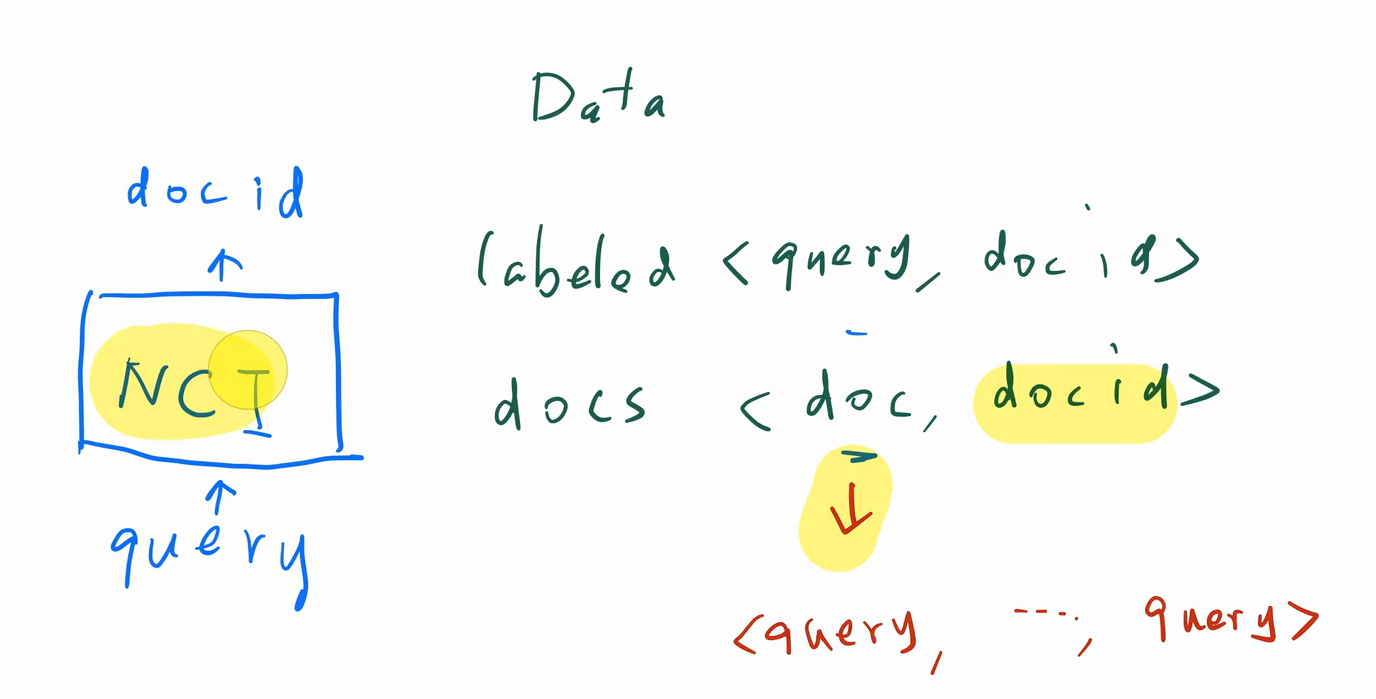 Data
docid
↑
NCI
↑
query
labeled <query, docid>
docs <doc, docid>
↓
<query, ---, query>